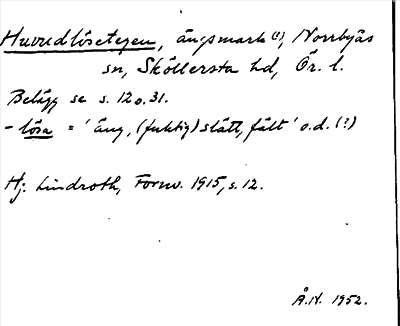 Huvudlösetegen, ängsmark (?), Norrbyås
sn, Sköllersta hd, Ör. l.
Belägg se s. 12 o. 31.
- lösa = 'äng, (fuktig) slätt, fält' o.d. (?)
Hj. Lindroth, Fornv. 1915, s. 12.
Å.H. 1952.